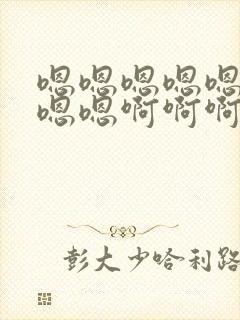 嗯嗯嗯嗯嗯
嗯嗯啊啊啊
彭大少哈利路